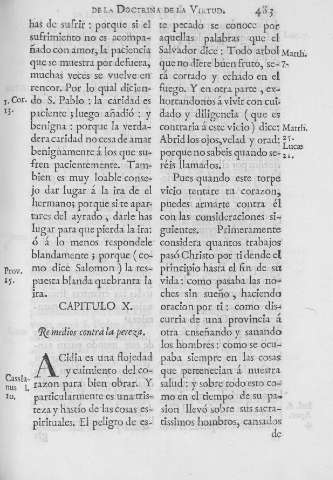 DE LA DOCTRINA DE LA VIRTUD. 483
has de sufrir: porque si el
sufrimiento no es acompa-
ñado con amor, la paciencia
que se muestra por defuera,
muchas veces se vuelve en
rencor. Por lo qual dicien-
do S. Pablo: la caridad es
paciente; luego añadió: y
benigna: porque la verda-
dera caridad no cesa de amar
benignamente á los que su-
fren pacientemente. Tam-
bien es muy loable conse-
jo dar lugar á la ira de el
hermano; porque si te apar-
tares del ayrado, darle has
lugar para que pierda la ira:
ó á lo menos respondele
blandamente; porque (co-
mo dice Salomon) la res-
puesta blanda quebranta la
ira.
1. Cor.
13.
Prov.
15.
CAPITULO X.
Remedios contra la pereza.
ACidia es una flojedad
y caimiento del co-
razon para bien obrar. Y
particularmente es una tris-
teza y hastío de las cosas es-
pirituales. El peligro de es-
Cassia-
nus l.
10.
te pecado se conoce por
aquellas palabras que el
Salvador dice: Todo arbol
que no diere buen fruto, se-
rá cortado y echado en el
fuego. Y en otra parte, ex-
hortandonos á vivir con cui-
dado y diligencia (que es
contraria á este vicio) dice:
Abrid los ojos, velad y orad;
porque no sabeis quando se-
réis llamados.
Matth.
7.
Matth.
25.
Lucas
21.
Pues quando este torpe
vicio tentare tu corazon,
puedes armarte contra él
con las consideraciones si-
guientes. Primeramente
considera quantos trabajos
pasó Christo por ti dende el
principio hasta el fin de su
vida: como pasaba las no-
ches sin sueño, haciendo
oracion por ti: como dis-
curria de una provincia á
otra enseñando y sanando
los hombres: como se ocu-
paba siempre en las cosas
que pertenecian á nuestra
salud: y sobre todo esto co-
mo en el tiempo de su pa-
sion llevó sobre sus sacra-
tisimos hombros, cansados
de